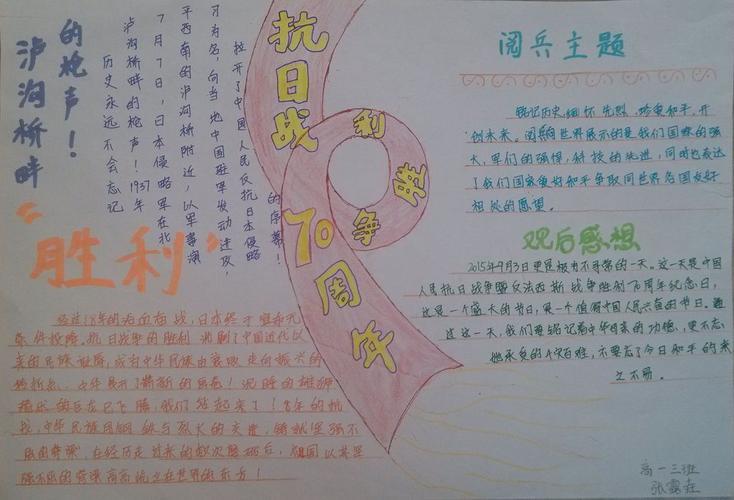 泸沟桥畔
的枪声！
历史永远不会忘记
泸沟桥畔的枪声！1937年
7月7日，日本侵略军在北
平西南的泸沟桥附近，以军事演
习为名，向当地中国驻军发动进攻，
拉开了中国人民反抗日本侵略
的序幕！
抗日战
争胜利
70周年
“胜利”
经过8年的浴血奋战，日本终于宣布无
条件投降，抗日战争的胜利
洗刷了中国近代以
来的民族耻辱，成为中华民族由衰败走向振兴的
转折点
我们站起来了！8年的抗
战，中华民族用钢铁与烈火的
不屈的脊梁，在经历过
强不屈的脊梁高高屹立在世界的东方！
阅兵主题
铭记历史缅怀先烈，珍爱和平，开
创未来。阅兵向世界展示的是我们国家的强
大，军们的强悍，科技的先进，同时也表达
了我们国家爱好和平争取同世界各国友好
相处的愿望。
观后感想
2015年9月3日更是极为不寻常的一天。这一天是中国
人民抗日战争暨反法西斯战争胜利70周年纪念日，
这是一个盛大的节日，是一个值得中国人民兴奋的节日。通
过这一天，我们要铭记着中华母亲的功德，更不忘
她承受的千灾百难，不要忘了今日和平的来
之不易。
高一三班